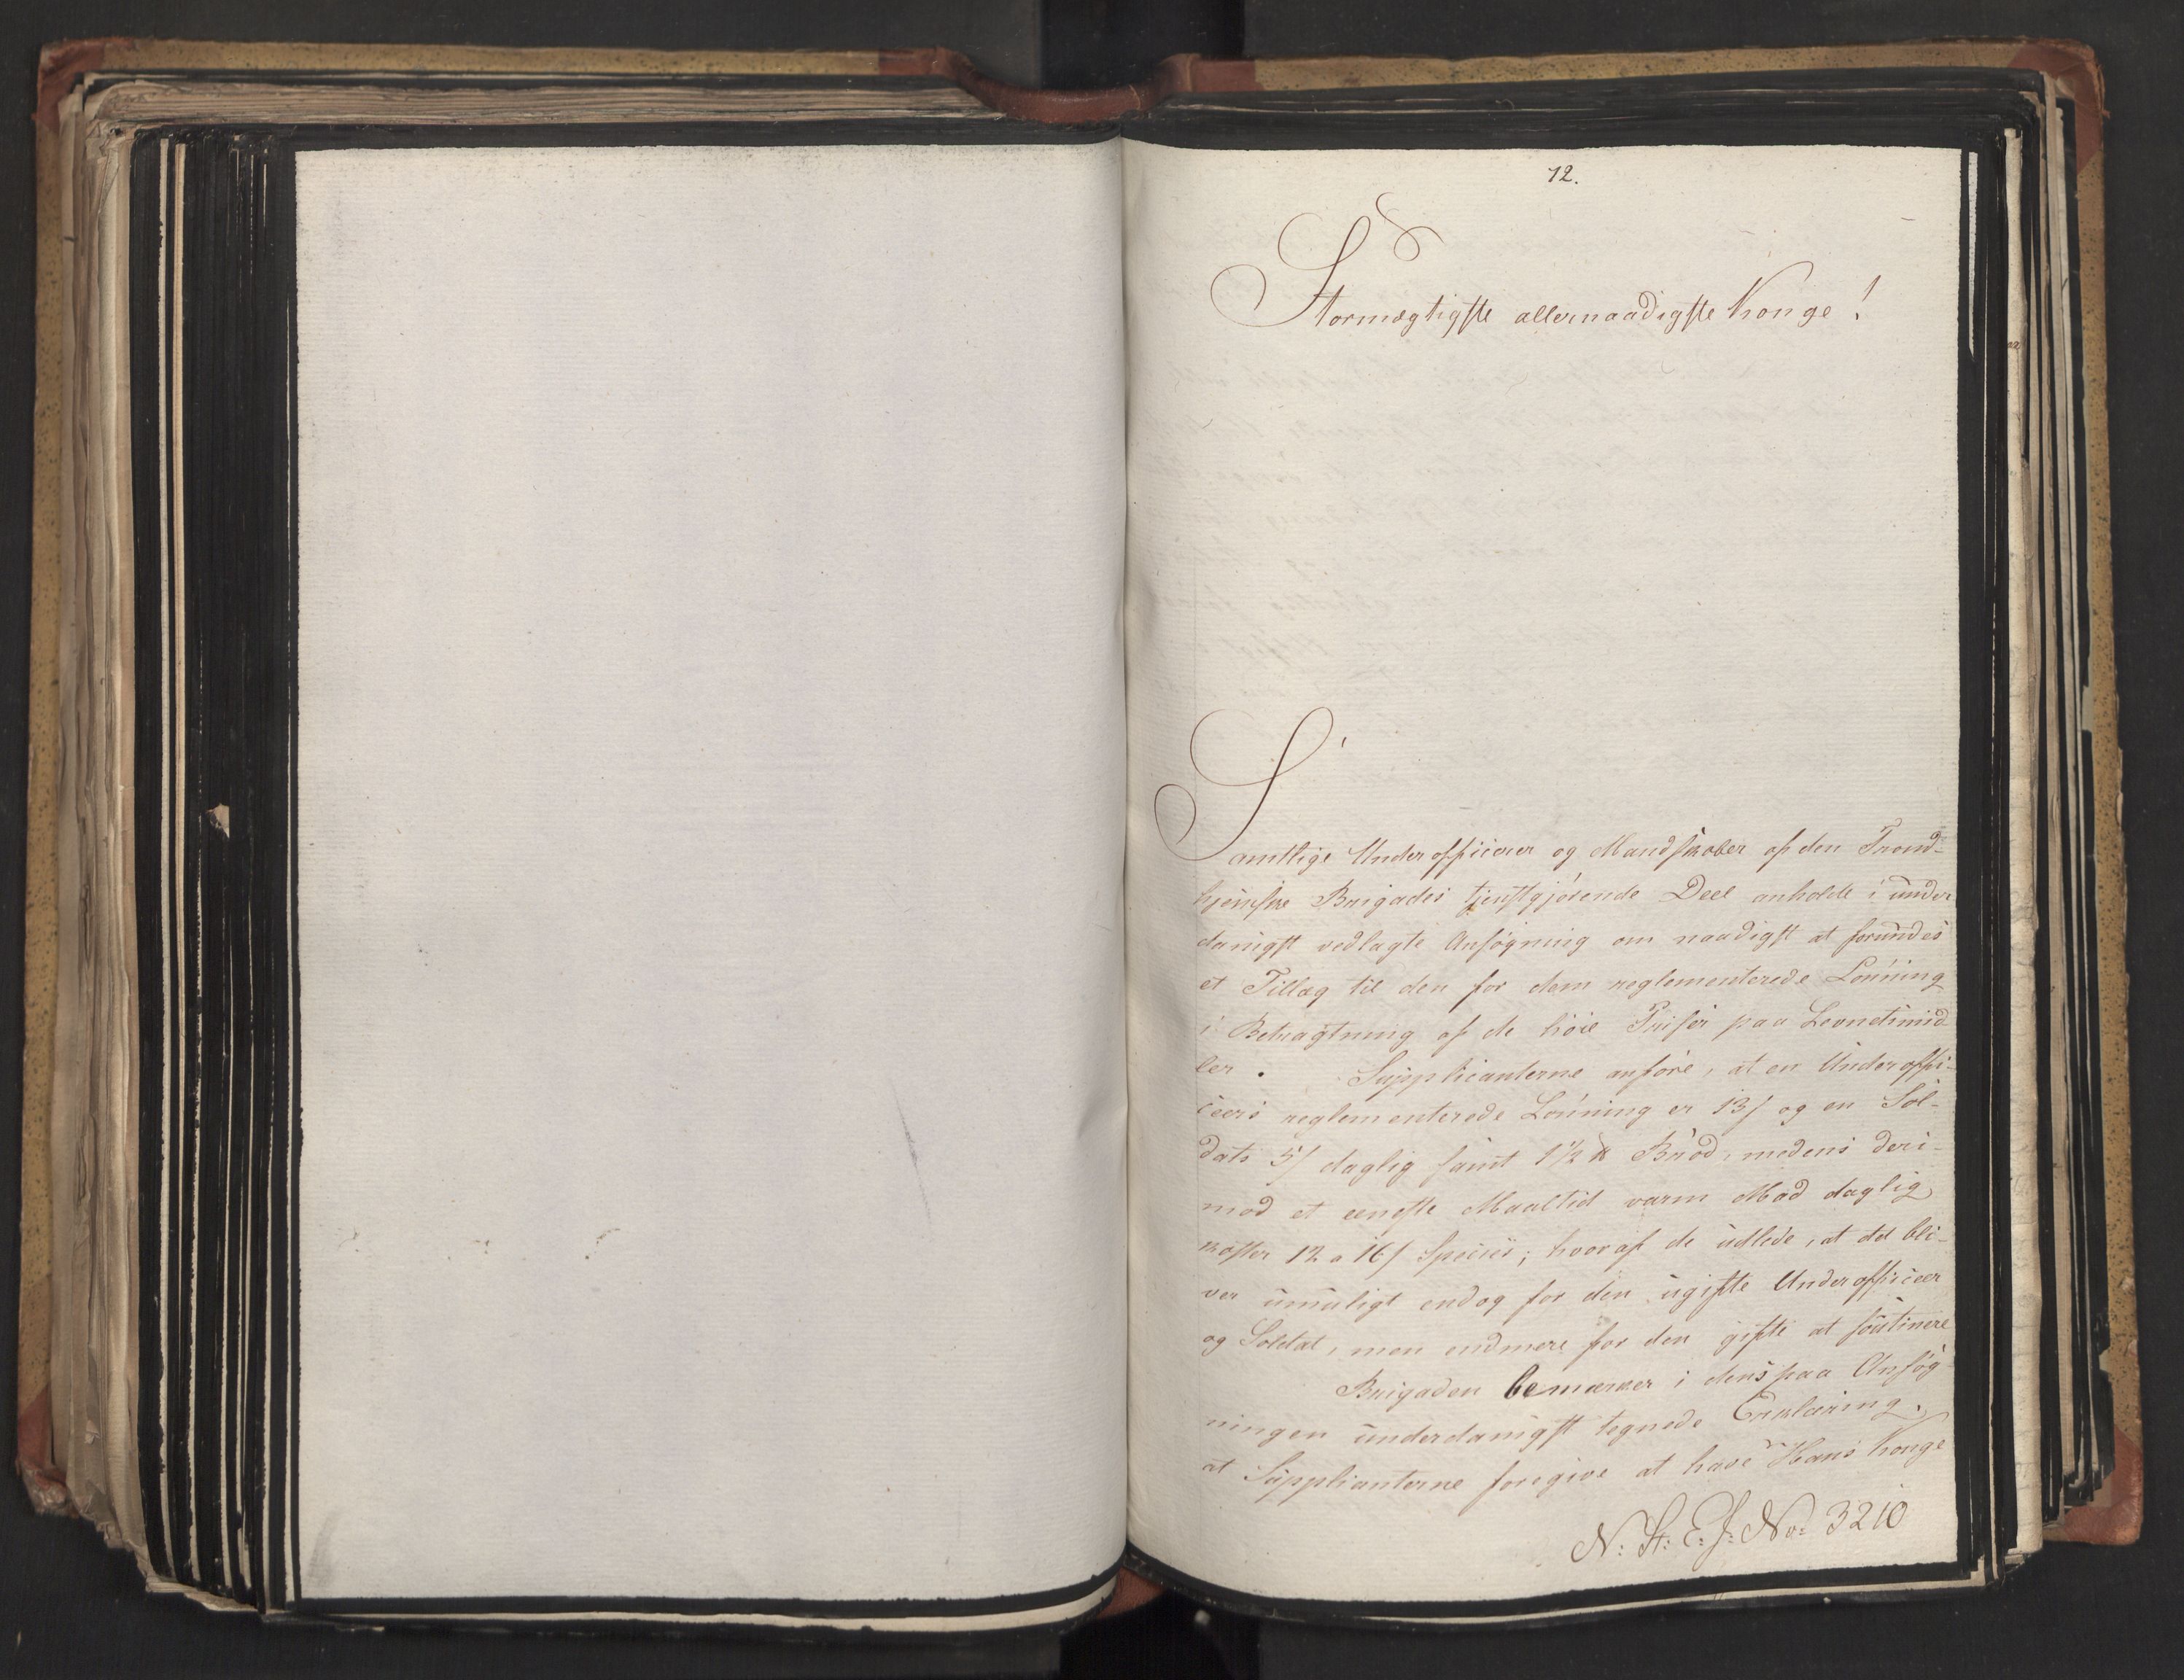 12.
Stormægtigste allernaadigste Konge!
Samtlige Underofficerer og Mandskaber af den Trond-
hjemske Brigades tjenstgjørende Deel anholde i under
danigst vedlagte Ansøgning om naadigst at forundes
et Tillæg til den for dem reglementerede Lønning
i Betragtning af de høie Priser paa Levnetsmid
ler. Supplicanterne anføre, at en Underoffi-
ceers reglementerede Lønning er 13ſ og en Sol-
dats 5ſ daglig samt 1½ ℔ Brød, medens deri-
mod et eeneste Maaltid varm Mad daglig
koster 12 a 16ſ Species; hvoraf de udlede, at det bli-
ver umuligt endog for den ugifte Underofficeer
og Soldat, men endmere for den gifte at soutinere
Brigaden bemærker i dens paa Ansøg
ningen underdanigst tegnede Erklæring,
at Supplianterne foregive at have Hans Konge
N: St: E: J: No: 3210